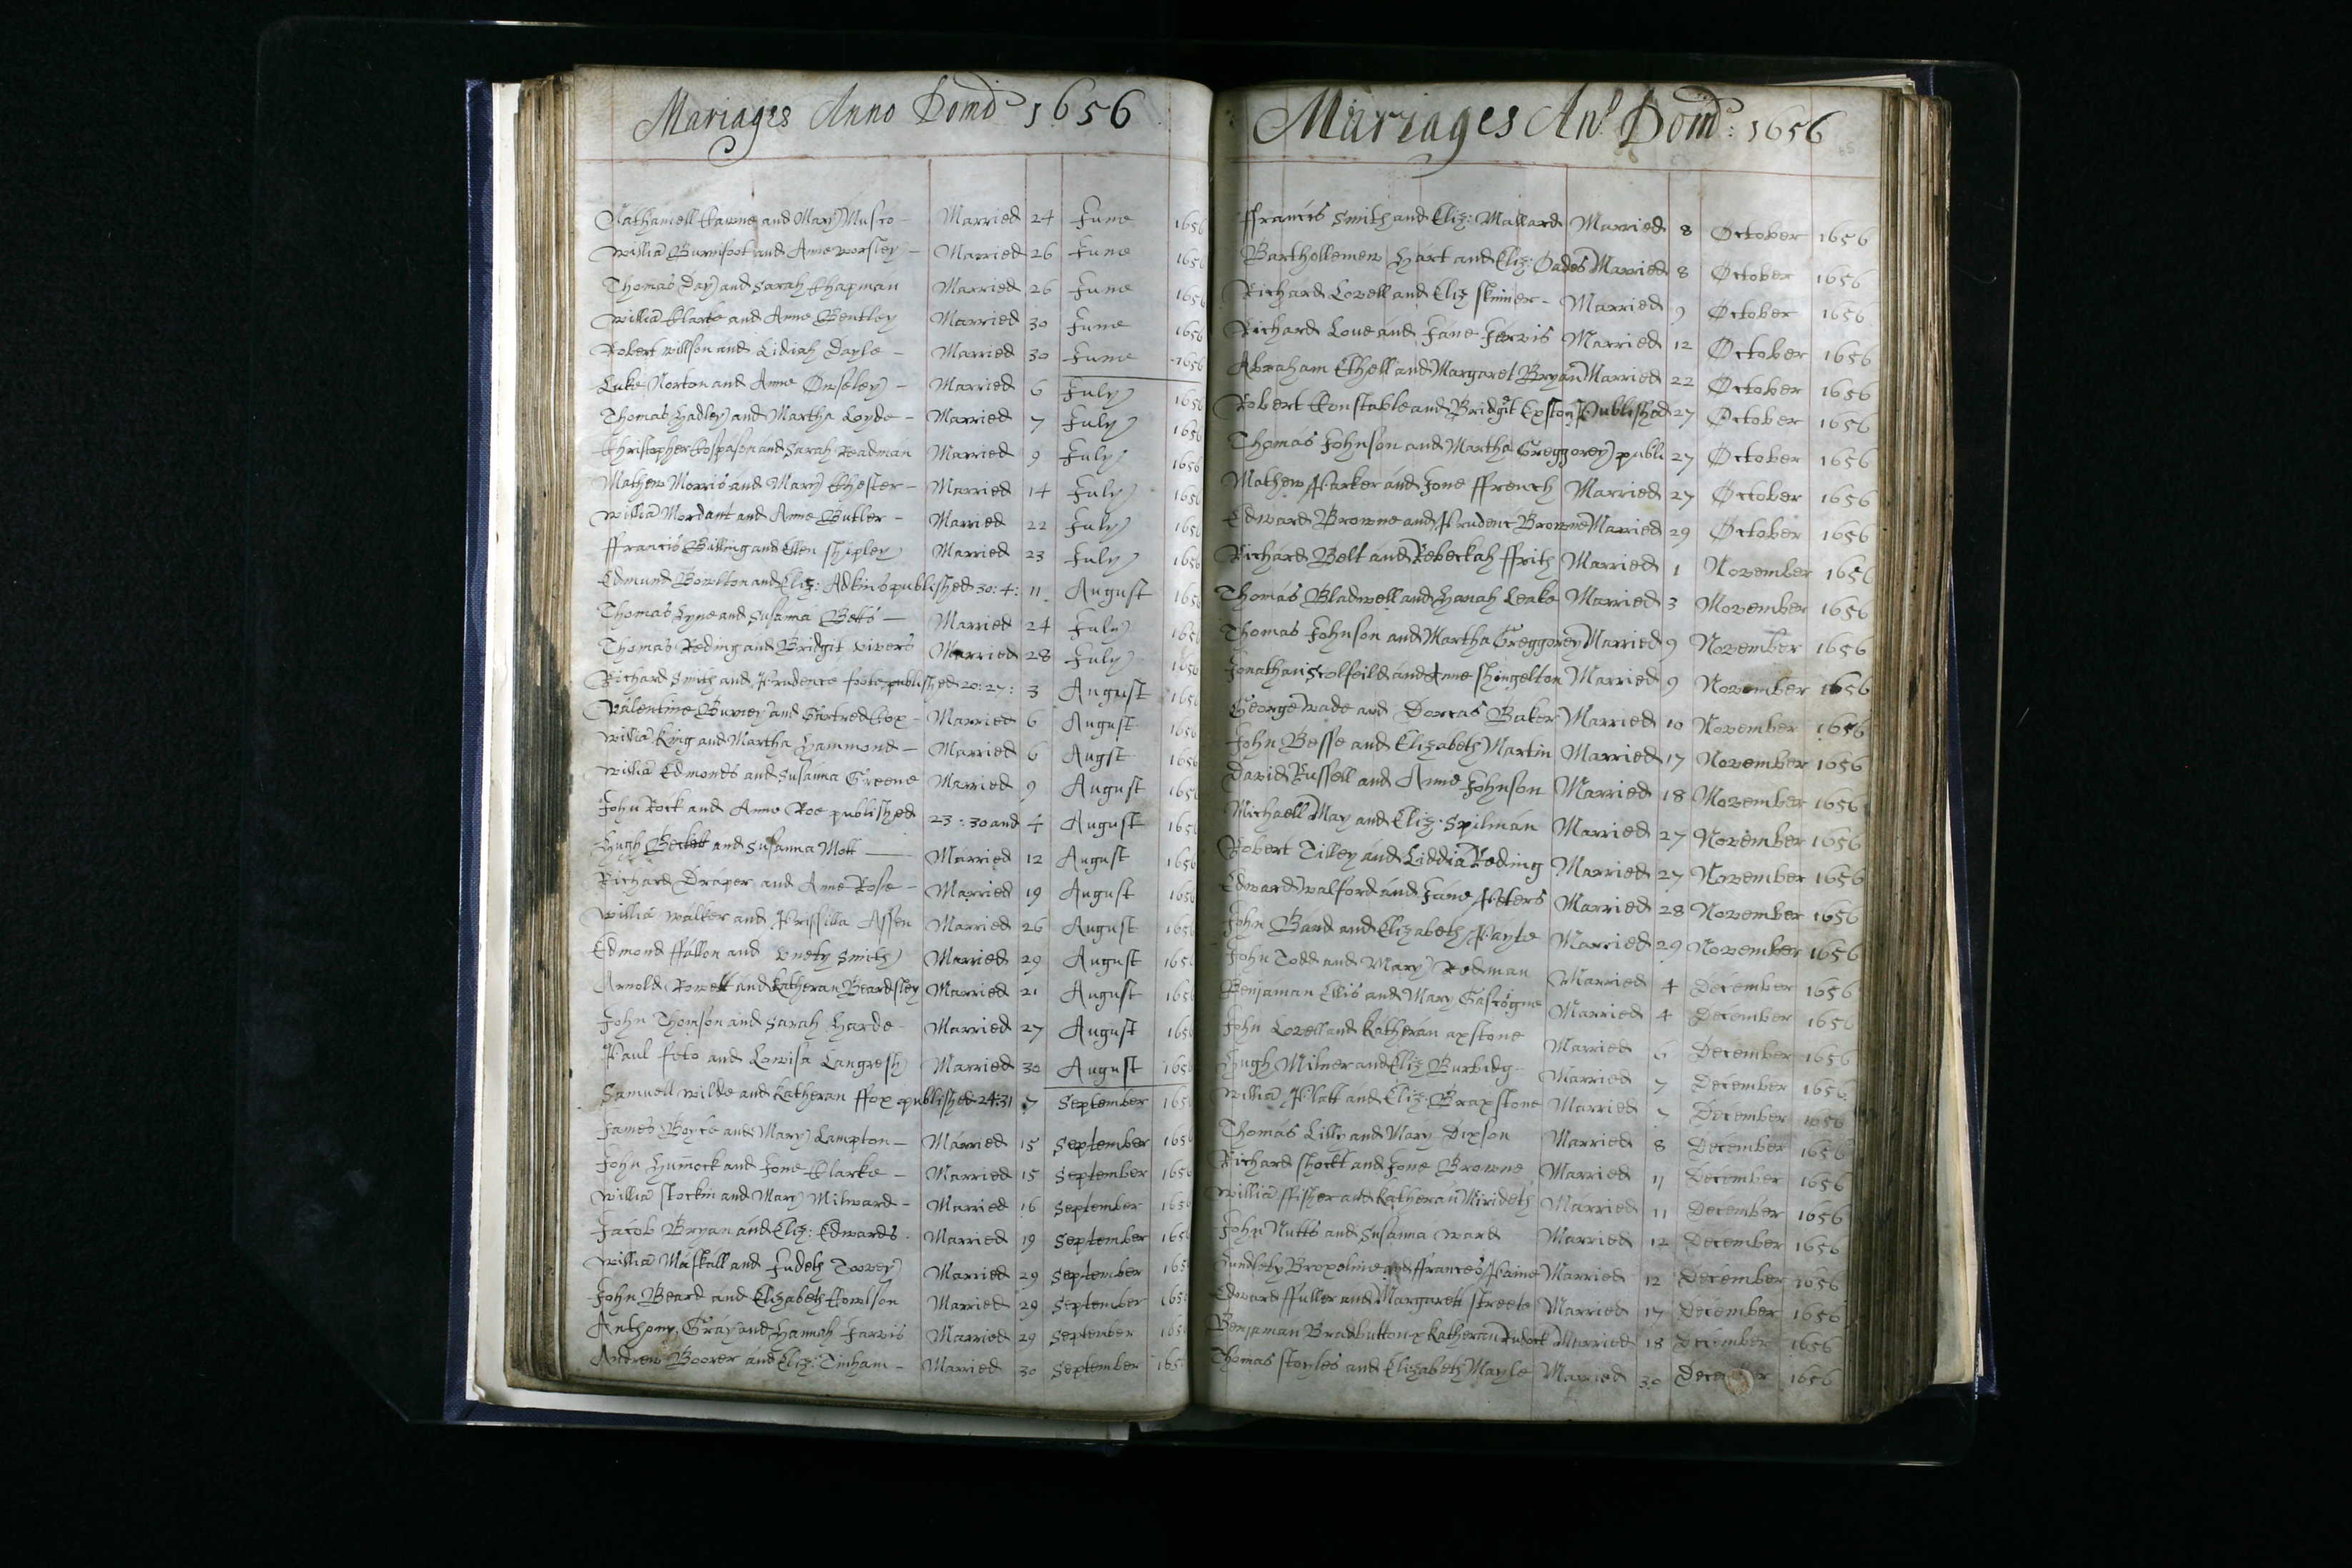 Mariages Anno Domd 1656
Nathaniell and Mary Musco - Married 24 June 1656
Willia Burnifoot and Anne Worsley - Married 26 June 1656
Thomas Day and Sarah Chapman Married 26 June 1656
Willia Clarke and Anne Bentley Married 30 June 1656
Robert Willson and Lidiah Dayle - Married 30 June 1656
Luke Norton and Anne Ownseley - Married 6 July 1656
Thomas Hadley and Martha Loyde - Married 7 July 1656
Christopher and Sarah Readman Married 9 July 1656
Mathew Morris and Mary Chester - Married 14 July 1656
Willia Mordant and Anne Butler - Married 22 July 1656
ffrancis Billing and Ellen Shipley Married 23 July 1656
Edmund Bowlton and Eliz: Adkins published 30: 4: 11 August 1656
Thomas Hyne and Susanna Betts - Married 24 July 1656
Thomas Reding and Bridgit Vivers Married 28 July 1656
Richard Smith and Prudence foote published 20: 27: 3 August 1656
Valentine and Gartred Cox - Married 6 August 1656
Willia King and Martha Hammond - Married 6 Augst 1656
Willia Edmonds and Susanna Greene Married 9 August 1656
John Rock and Anne Roe published 23: 30 and 4 August 1656
Hugh Beckett and Susanna Mott - Married 12 August 1656
Richard Draper and Anne Rose - Married 19 August 1656
Willia Walker and Prissilla Assen Married 26 August 1656
Edmond ffallon and Unety Smith Married 29 August 1656
Arnold Rowett and Katheran Beardsley Married 21 August 1656
John Thomson and Sarah Harde Married 27 August 1656
Paul and Lowisa Langresh Married 30 August 1656
Samuell Wilde and Katheran ffox published 24: 31 7 September 1656
James Boyce and Mary Lampton - Married 15 September 1656
John Hum̄ock and Jone Clarke - Married 15 September 1656
Willia Stockin and Mary Milward - Married 16 September 1656
Jacob Bryan and Eliz: Edwards. Married 19 September 1656
Willia Maskall and Judeth Tovey Married 29 September 1656
John Beard and Elizabeth Cowlson Married 29 September 1656
Anthony Gray and Hannah Jarvis Married 29 September 1656
Andrew Boorer and Eliz: Tinham - Married 30 September 1656
Mariages Ano Domd: 1656
ffrancis Smith and Eliz: Mallard Married 8 October 1656
Barthollemew Hart and Eliz: Oades Married 8 October 1656
Richard Lovell and Eliz Skinner - Married 9 October 1656
Richard Love and Jane Jervis Married 12 October 1656
Abraham Chell and Margaret Bryan Married 22 October 1656
Robert Constable and Bridgit Published 27 October 1656
Thomas Johnson and Martha Greggorey publi 27 October 1656
Mathew Parker and Jone ffrench Married 27 October 1656
Edward Browne and Prudenc Browne Married 29 October 1656
Richard Belt and Rebeckah ffrith Married 1 November 1656
Thomas Bladwell and Hanah Leake Married 3 November 1656
Thomas Johnson and Martha Greggorey Married 9 November 1656
Jonathan Scolfeild and Anne Shingelton Married 9 November 1656
George Wade and Dorcas Baker Married 10 November 1656
John Besse and Elizabeth Martin Married 17 November 1656
David Russell and Anne Johnson Married 18 November 1656
Michaell May and Eliz: Spilman Married 27 November 1656
Robert Tilley and Liddia Reding Married 27 November 1656
Edward Walford and Jane Peters Married 28 November 1656
John Band and Elizabeth Payle Married 29 November 1656
John Todd and Mary Redman Married 4 December 1656
Benjaman Ellis and Mary Gascogne Married 4 December 1656
John Lovell and Katheran axstone Married 6 December 1656
Hugh Milner and Eliz Burbidg - Married 7 December 1656
Willia Platt and Eliz: Braxstone Married 7 December 1656
Thomas Lille and Mary Dixson Married 8 December 1656
Richard Shockt and Jone Browne Married 11 December 1656
Willia ffisher and Katheran Mirideth Married 11 December 1656
John Nutts and Susanna Ward Married 12 December 1656
and ffrances Paine Married 12 December 1656
Edward ffuller and Margarett Streete Married 17 December 1656
Benjaman Bradbutton & Katheran Married 18 December 1656
Thomas Stoyles and Elizabeth Mayle Married 30 December 1656